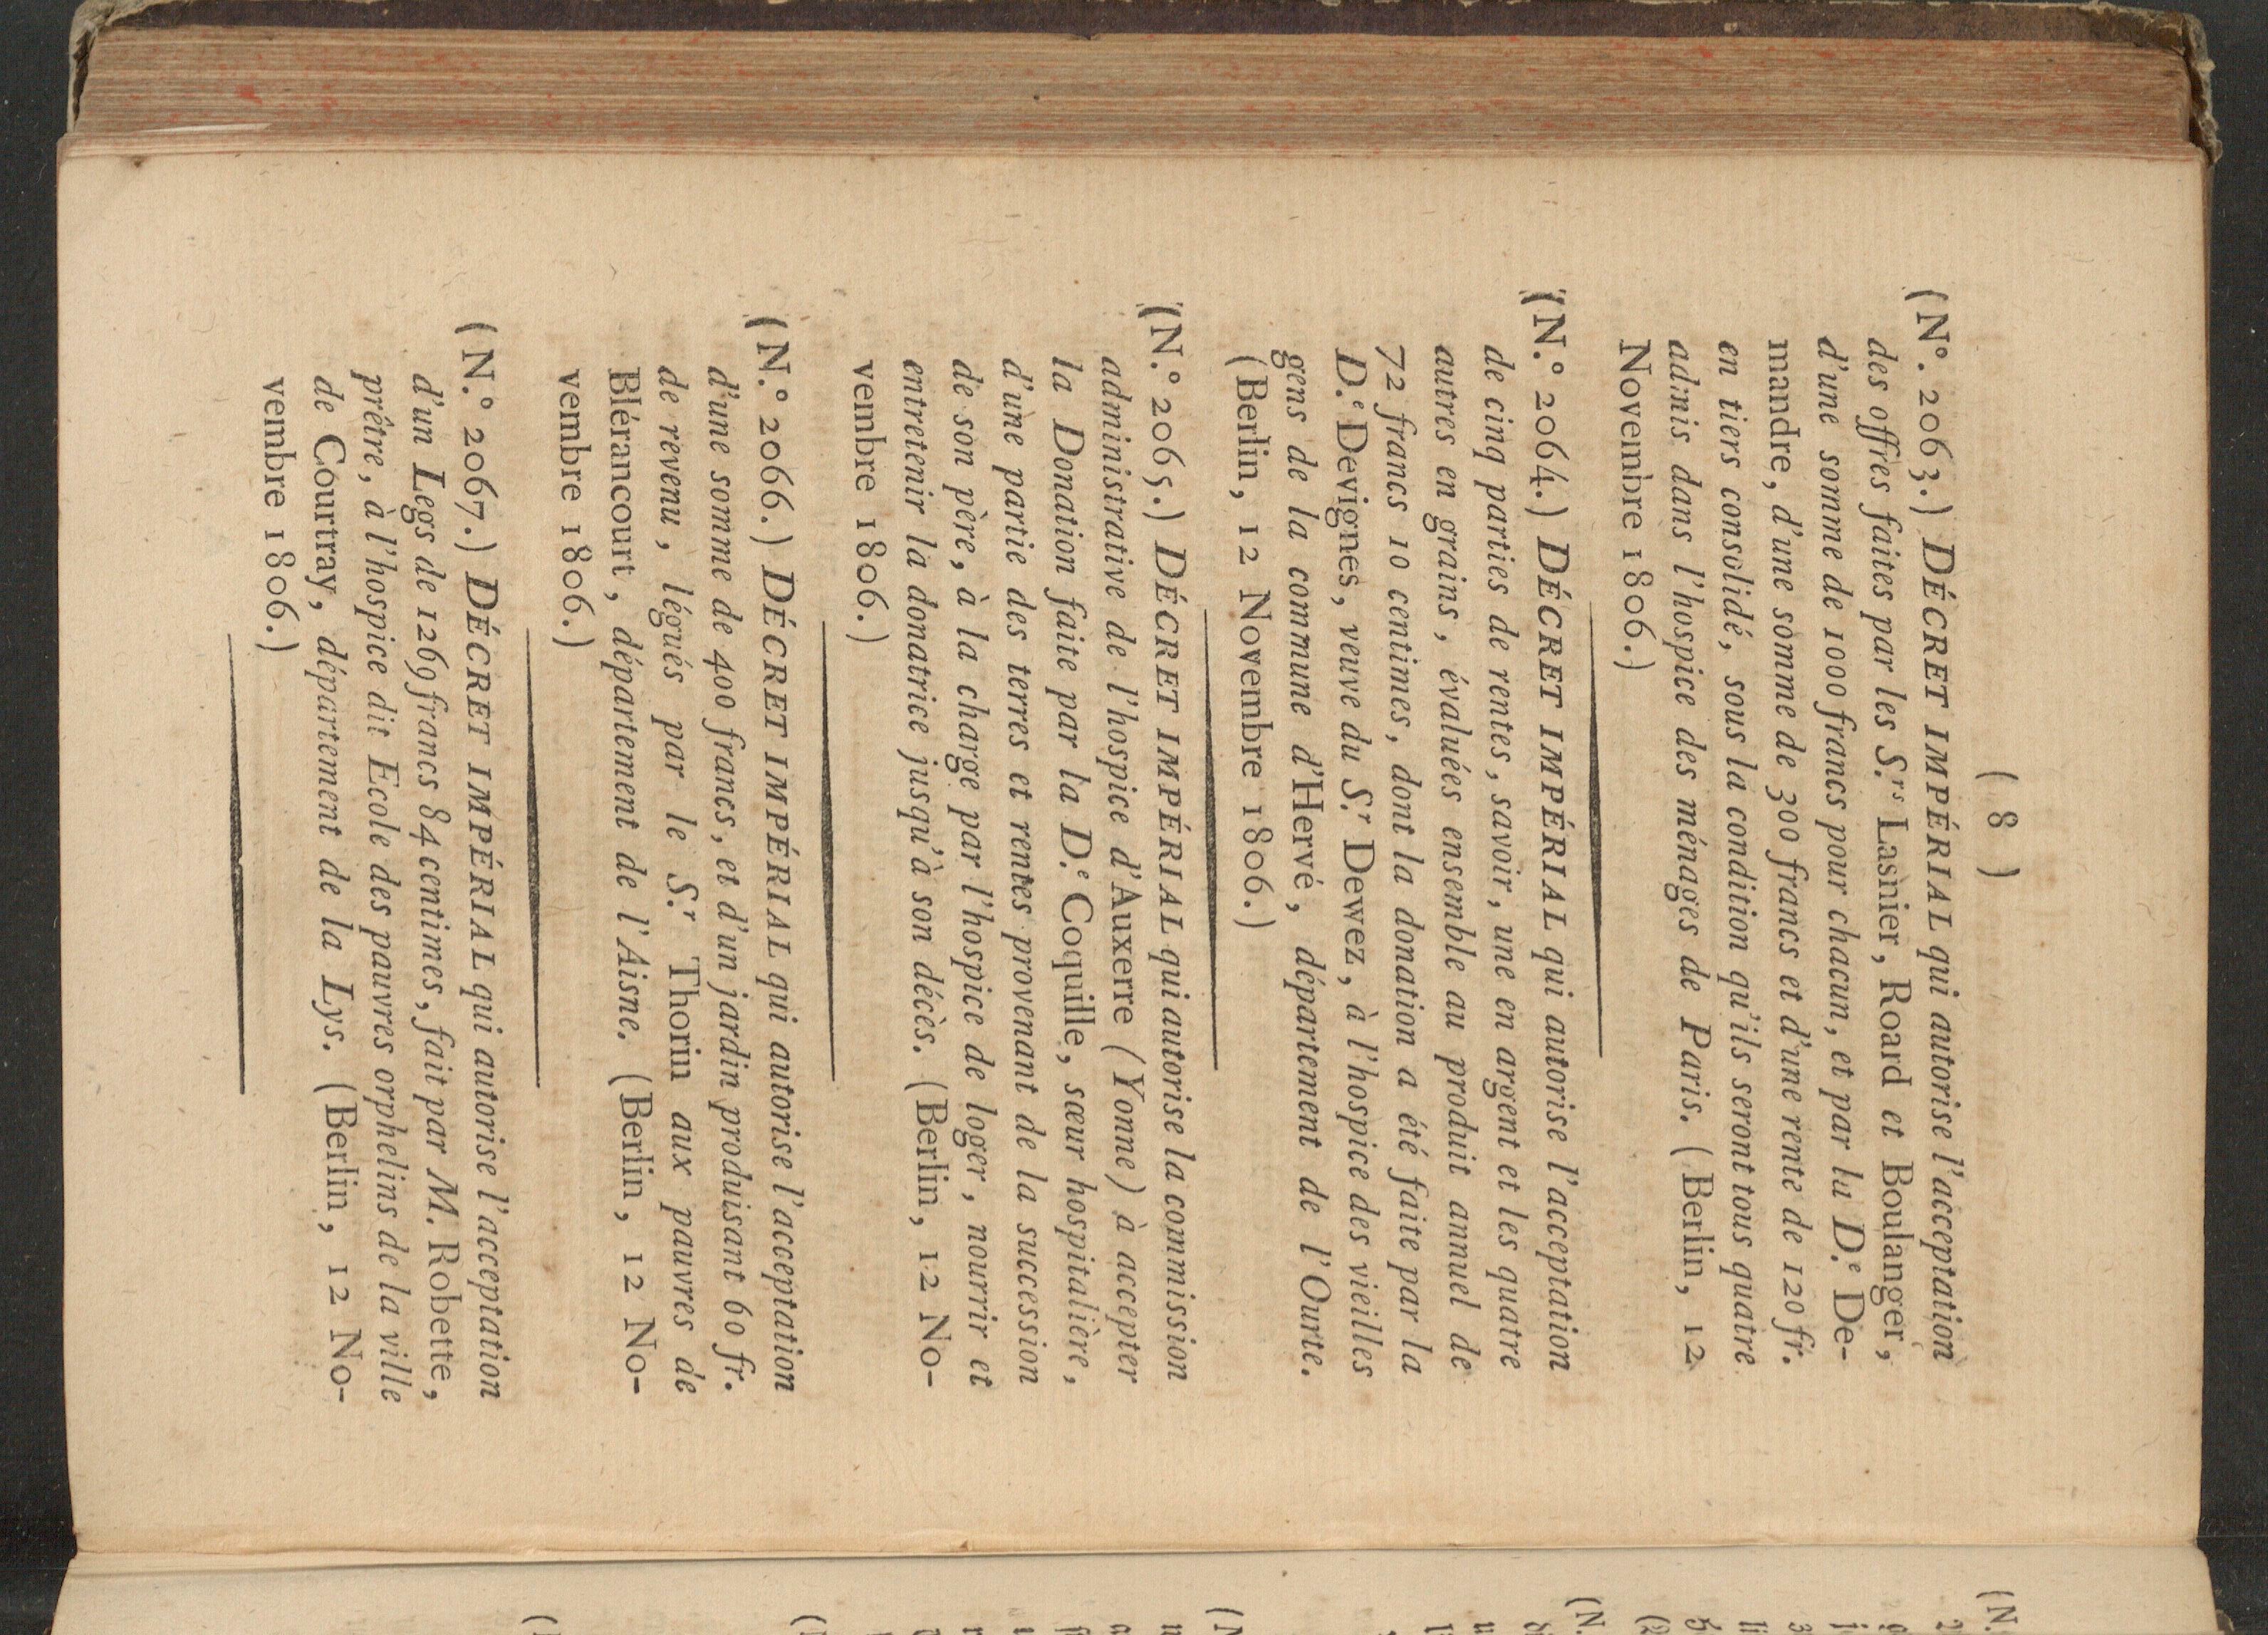 ( 8 )
(N°. 2063.) DÉCRET IMPÉRIAL qui autorise l'acceptation
des offres faites par les S.rs Lasnier, Roard et Boulanger,
d'une somme de 1000 francs pour chacun, et par la D.e De-
mandre, d'une somme de 300 francs et d'une rente de 120 fr.
en tiers consolidé, sous la condition qu'ils seront tous quatre
admis dans l'hospice des ménages de Paris. (Berlin, 12
Novembre 1806.)
(N.° 2064.) DÉCRET IMPÉRIAL qui autorise l'acceptation
de cinq parties de rentes, savoir, une en argent et les quatre
autres en grains, évaluées ensemble au produit annuel de
72 francs 10 centimes, dont la donation a été faite par la
D.e Devignes, veuve du S.r Dewez, à l'hospice des vieilles
gens de la commune d'Hervé, département de l'Ourte.
(Berlin, 12 Novembre 1806.)
(N.° 2065.) DÉCRET IMPÉRIAL qui autorise la commission
administrative de l'hospice d'Auxerre (Yonne) à accepter
la Donation faite par la D.e Coquille, sœur hospitalière,
d'une partie des terres et rentes provenant de la succession
de son père, à la charge par l'hospice de loger, nourrir et
entretenir la donatrice jusqu'à son décès. (Berlin, 12 No-
vembre 1806.)
(N.° 2066.) DÉCRET IMPÉRIAL qui autorise l'acceptation
d'une somme de 400 francs, et d'un jardin produisant 60 fr.
de revenu, légués par le S.r Thorin aux pauvres de
Blérancourt, département de l'Aisne. (Berlin, 12 No-
vembre 1806.)
(N.° 2067.) DÉCRET IMPÉRIAL qui autorise l'acceptation
d'un Legs de 1269 francs 84 centimes, fait par M. Robette,
prêtre, à l'hospice dit Ecole des pauvres orphelins de la ville
de Courtray, département de la Lys. (Berlin, 12 No-
vembre 1806.)